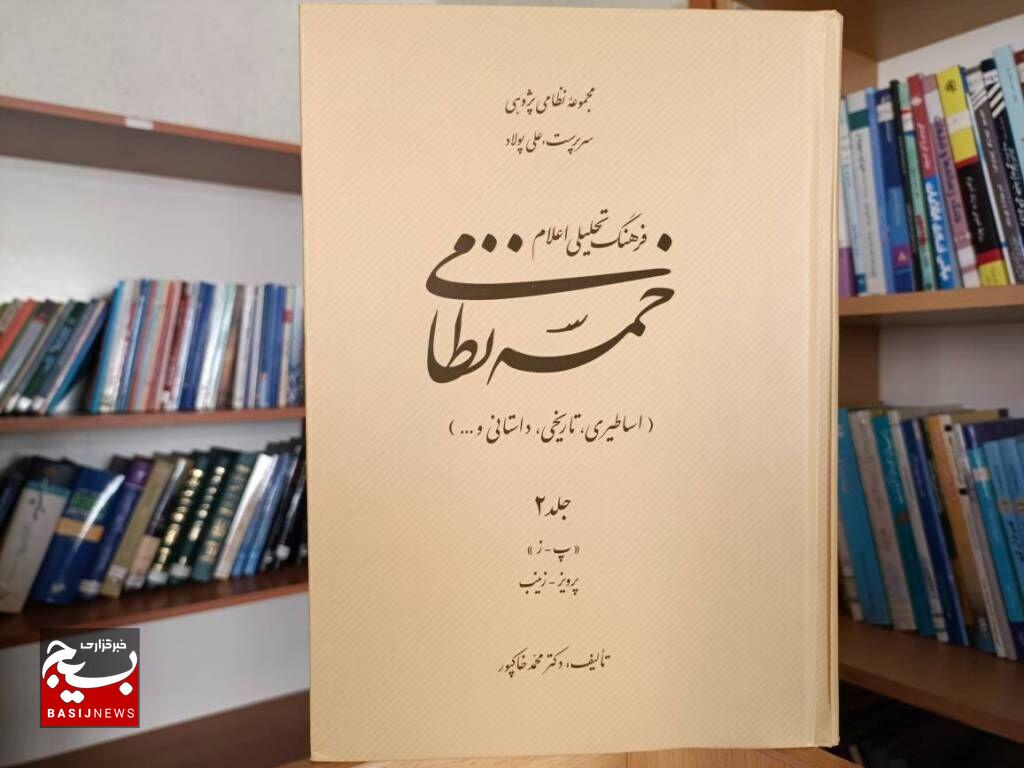 مجموعهٔ نظامی پژوهی
سرپرست، علی پولاد
فرهنگ تحلیلی اعلام
خمسه نظامی
( اساطیری، تاریخی، داستانی و ... )
جلد ۲
« پ - ز »
پرویز - زینب
تألیف، دکتر محمد خاکپور
خبرگزاری
بسیج
BASIJNEWS